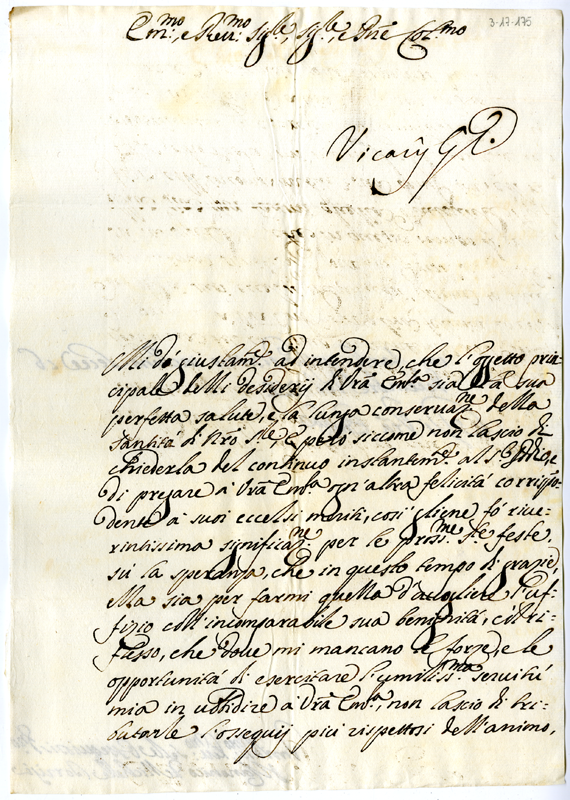 3-17-175
Em.mo, e Rev.mo Sig.re, Sig.re, e Pñe Col.mo
Vicarij G
Mi dò giustam.te ad intendere, che l'oggetto prin-
cipale delli desiderij di Vr̃a Em.a sia la sua
perfetta salute, e la lunga conserva.ne della
Santità di Nr̃o Sig.re, e però siccome non lascio di
chiederla del continuo instantem.te al Sig.r Iddio, e
di pregare à Vr̃a Em.a ogn'altra felicità corrispon-
dente a' suoi eccelsi meriti, così gliene fò rive-
rintissima significa.ne per le pross.me S.te feste,
sù la speranza, che in questo tempo di grazie,
ella sia per farmi quella d'accogliere l'uf-
fizio coll'incomparabile sua benignità, e di ri-
flesso, che dove mi mancano le forze, e le
opportunità di esercitare l'umilis.ma servitù
mia in ubbidire à Vr̃a Em.a, non lascio di tri-
butarle l'ossequij più rispettosi dell'animo,